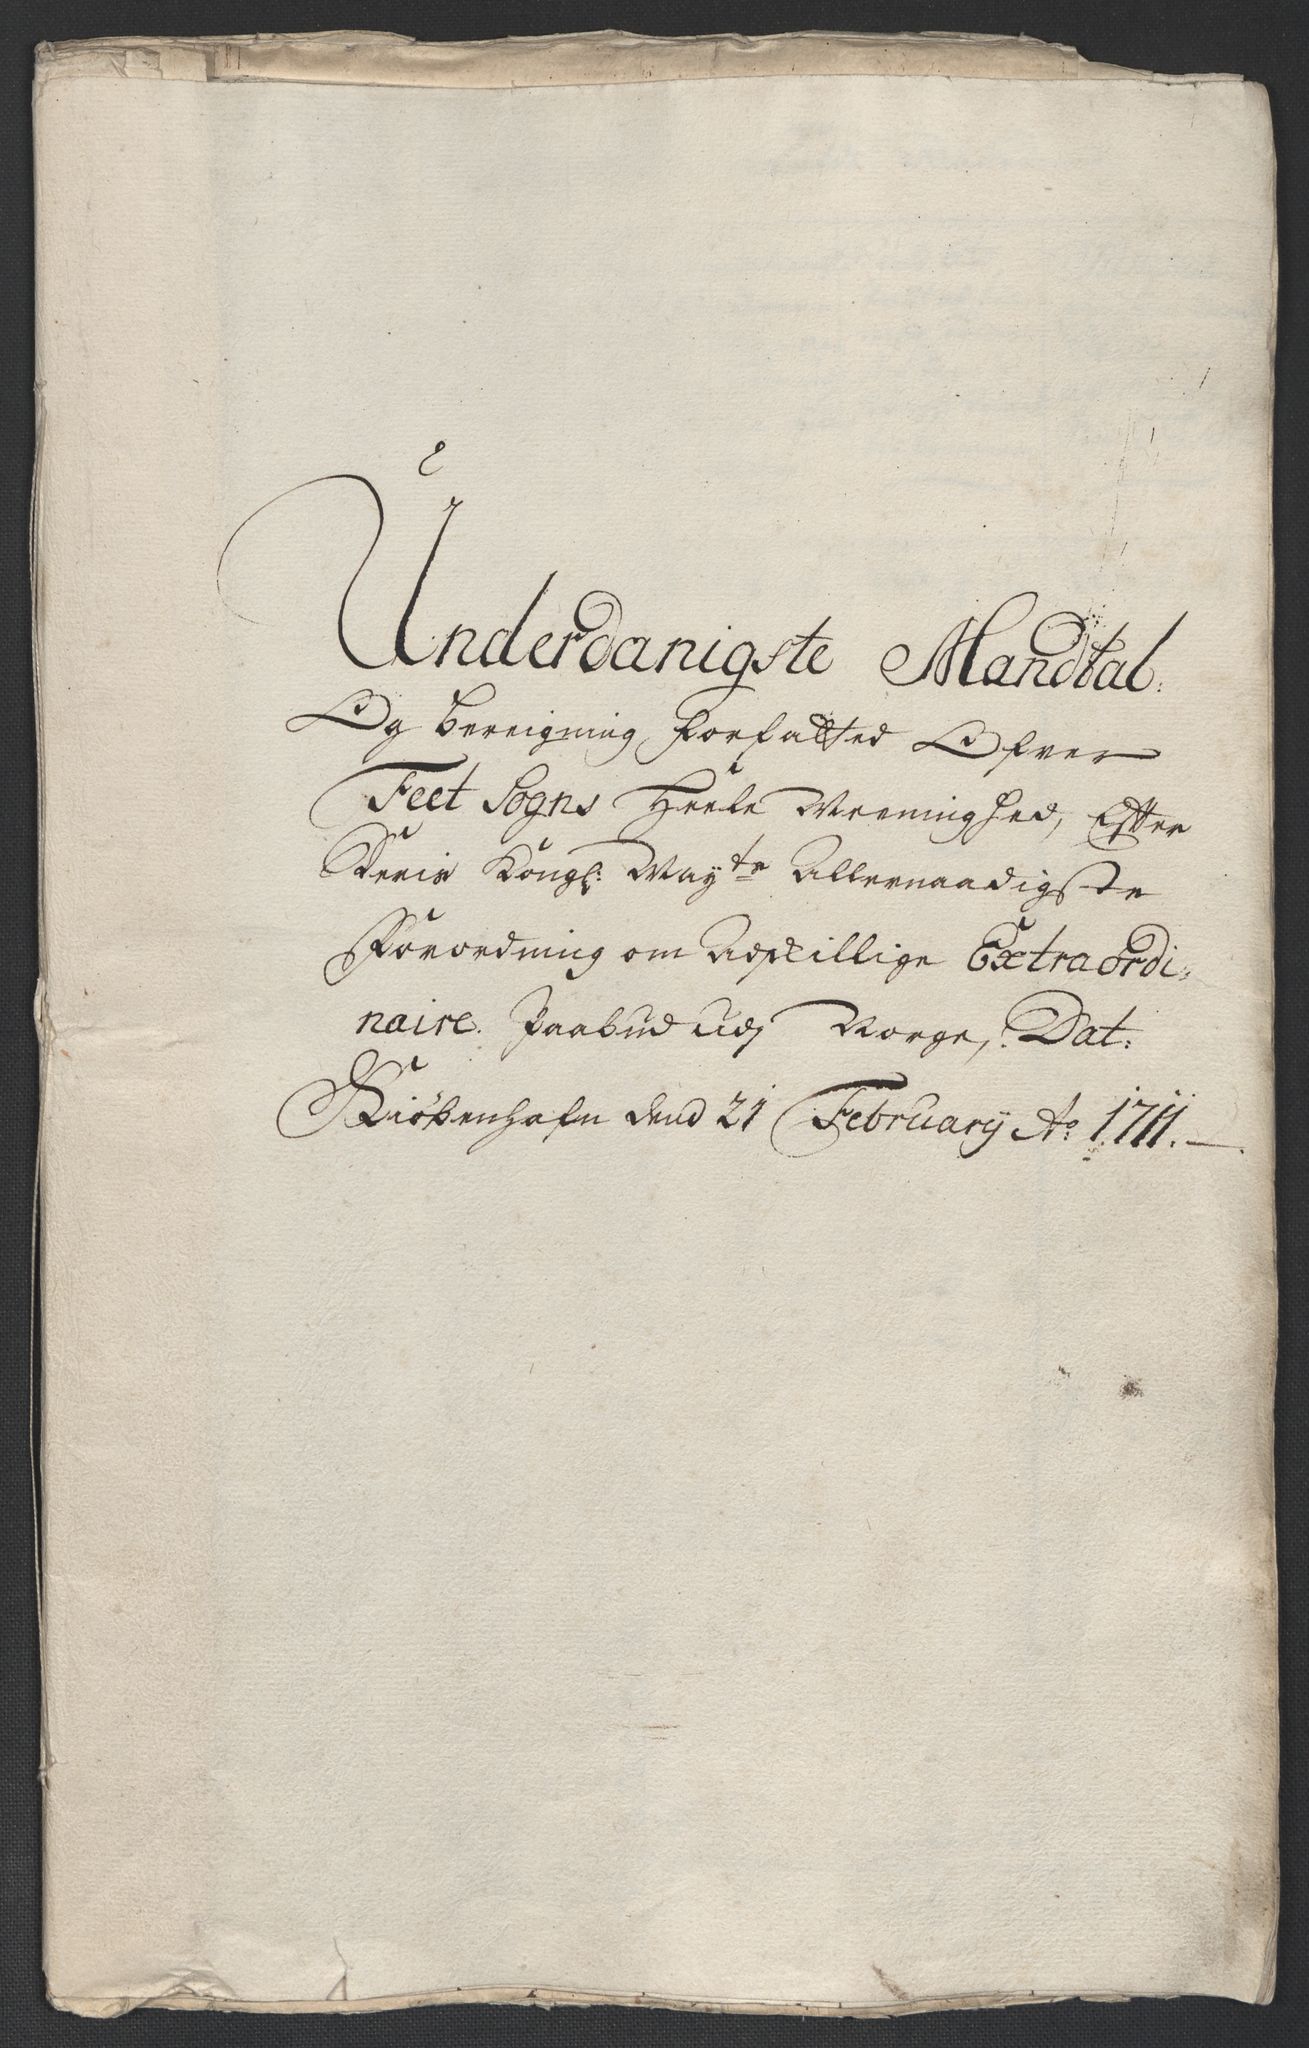 Underdanigste Mandtal:
Og bereigning forfatted Ofver
Feet Sogns Heele Meenighed, Efter
Deris Kongl: May:ts Allernaadigste
Forordning om Adskillige Extraordi:
naire. Paabud udj Norge, Dat:
Kiøbenhafn dend 21 February Ao 1711.